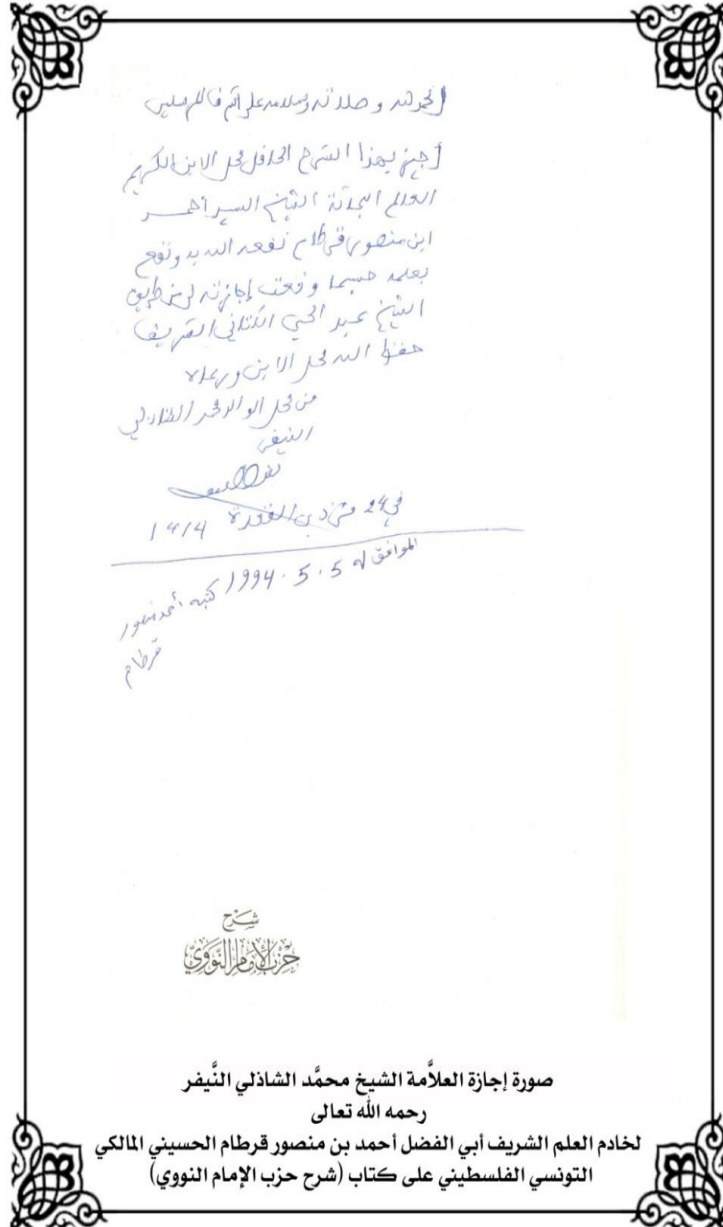 الحمد لله وصلاته وسلامه على أتم المرسلين
أجيز بهذا الشرح الحافل محل الابن الكريم
العالم البحاثة الشيخ السيد أحمد
ابن منصور قرطام نفعه الله به ونفع
بعلمه حسبما وقعت إجازته لي عن طريق
الشيخ عبد الحي الكتاني الشريف
حفظ الله محل الابن ورعاه
من محل الوالد محمد الشاذلي
النيفر
في 24 من ذي القعدة 1414
الموافق له 5 . 5 . 1994 كتبه أحمد منصور
قرطام
شرح
حزب الإمام النووي
صورة إجازة العلاَّمة الشيخ محمَّد الشاذلي النَّيفر
رحمه الله تعالى
لخادم العلم الشريف أبي الفضل أحمد بن منصور قرطام الحسيني المالكي
التونسي الفلسطيني على كتاب (شرح حزب الإمام النووي)